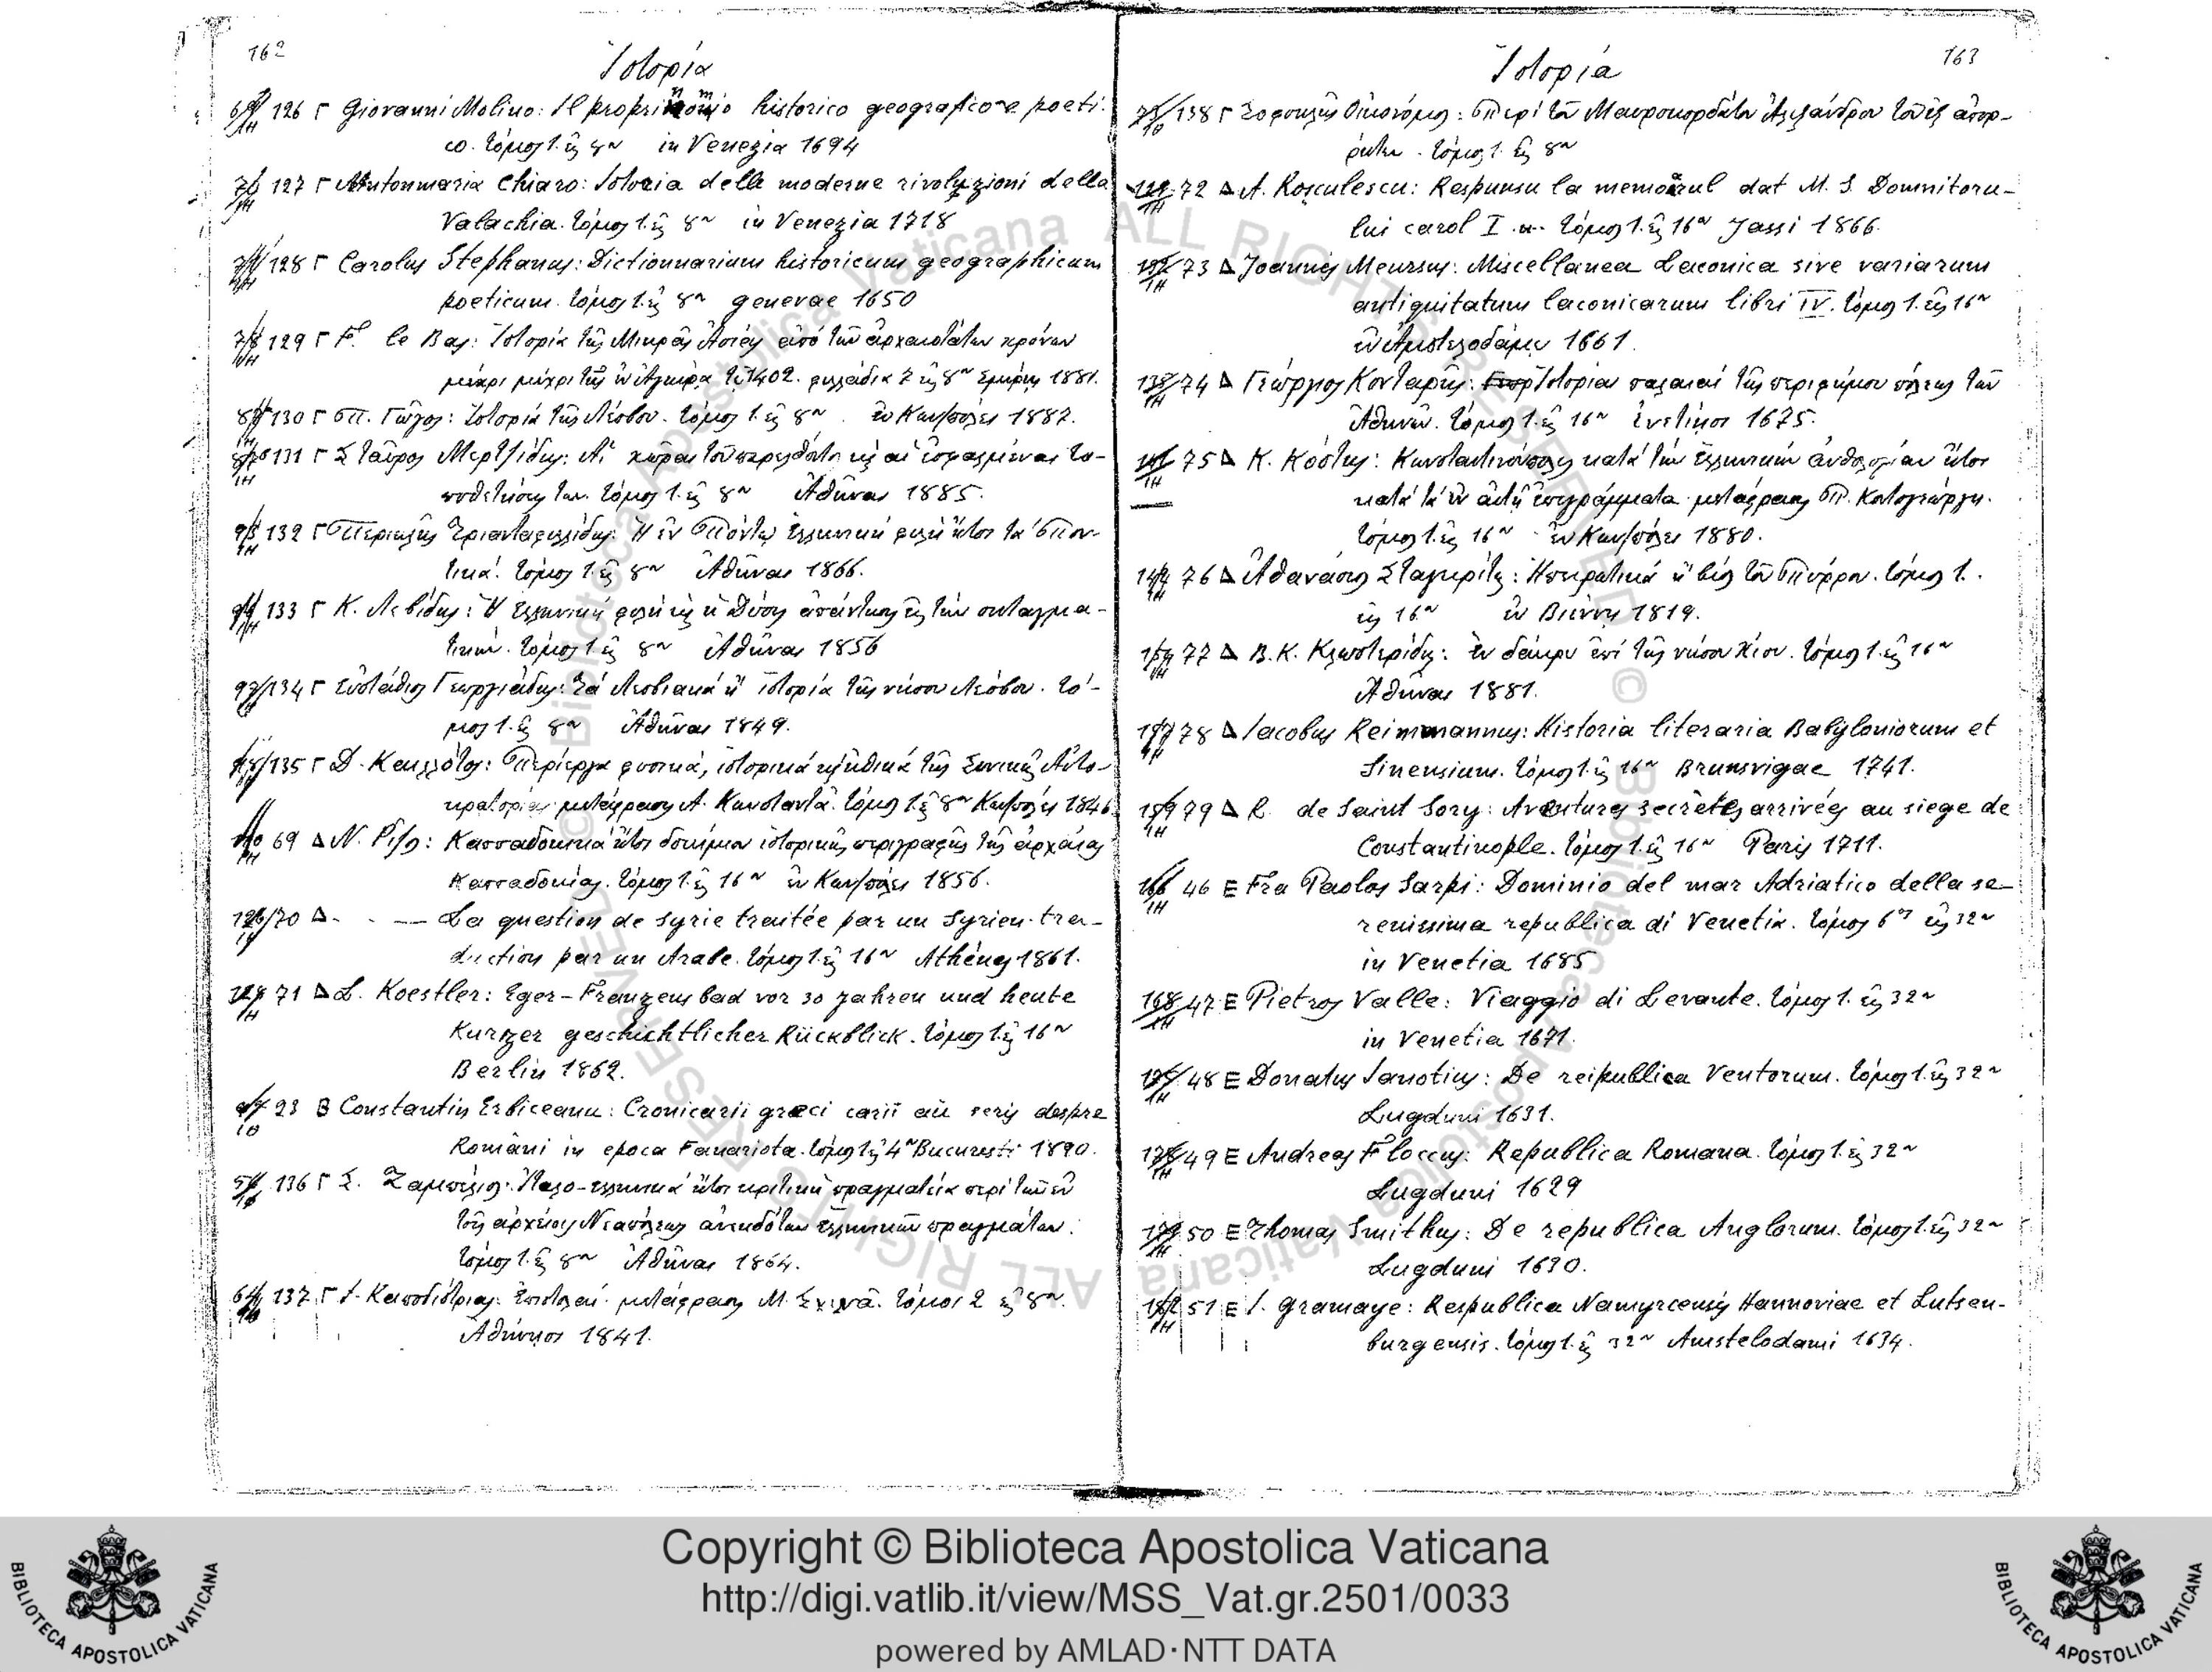 162
Ἱστορία
126 Γ Giovanni Molino: Il proprinomio historico geografico e poeti-
co. τόμος 1. εἰς 8ον in Venezia 1694
127 Γ Antonmaria Chiaro: Istoria delle moderne rivoluzioni della
Valachia. τόμος 1. εἰς 8ον in Venezia 1718
128 Γ Carolus Stephanus: Dictionnarium historicum geographicum
poeticum. τόμος 1. εἰς 8ον genevae 1650
129 Γ F. le Bas: Ἱστορία τῆς Μικρᾶς Ἀσίας ἀπό τῶν ἀρχαιοτάτων χρόνων
μέχρι μέχρι τῆς ἐν Ἀγκύρᾳ τῷ 1402. φυλλάδια 2 εἰς 8ον Σμύρνη 1881.
130 Γ Σπ. Γῶγος: Ἱστορία τῆς Λέσβου. τόμος 1. εἰς 8ον ἐν Κων/πόλει 1887.
131 Γ Σταῦρος Μερτζίδης: Αἱ χῶραι τοῦ παρελθόντος καὶ αἱ ἐσφαλμέναι το-
ποθετήσεις των. τόμος 1. εἰς 8ον Ἀθῆναι 1885.
132 Γ Περικλῆς Τριανταφυλλίδης: Ἡ ἐν Πόντῳ ἑλληνική φυλή ἤτοι τά Ποντ-
ικά. τόμος 1. εἰς 8ον Ἀθῆναι 1866.
133 Γ Κ. Λεβίδης: Ἡ ἑλληνική φυλή καὶ ἡ Δύσις ἀπάντησις εἰς τήν συνταγμα-
τικήν. τόμος 1. εἰς 8ον Ἀθῆναι 1856
97/134 Γ Εὐστάθιος Γεωργιάδης: Τά Λεσβιακά ἤ ἱστορία τῆς νήσου Λέσβου. τό-
μος 1. εἰς 8ον Ἀθῆναι 1849.
135 Γ Δ. Περίεργα φυσικά, ἱστορικά καὶ ἠθικά τῆς Σινικῆς Αὐτο-
κρατορίας μετάφρασις Α. Κωνσταντᾶ. τόμος 1. εἰς 8ον Κων/πόλει 1846.
69 Δ Ν. Ρίζος: Καππαδοκικά ἤτοι δοκίμιον ἱστορικῆς περιγραφῆς τῆς ἀρχαίας
Καππαδοκίας. τόμος 1. εἰς 16ον ἐν Κων/πόλει 1856.
70 Δ. — La question de Syrie traitée par un Syrien. tra-
duction par un Arabe. τόμος 1. εἰς 16ον Athénes 1861.
71 Δ L. Koestler: Eger-Franzensbad vor 30 Jahren und heute
Kurzer geschichtlicher Rückblick. τόμος 1. εἰς 16ον
Berlin 1862.
23 Β Constantin Erbiceanu: Cronicarii greci carii aŭ scris despre
Români in epoca Fanariota. τόμος 1. εἰς 4ον Bucuresti 1890.
136 Γ Σ. Ζαμπέλιος: Ἰταλο-ἑλληνικά ἤτοι κριτική πραγματεία περί τῶν ἐν
τοῖς ἀρχείοις Νεαπόλεως ἀνεκδότων ἑλληνικῶν πραγμάτων.
τόμος 1. εἰς 8ον Ἀθῆναι 1864.
137 Γ Ι. Καποδίστριας: Ἐπιστολαί. μετάφρασις Μ. Σχινᾶ. τόμοι 2 εἰς 8ον.
Ἀθήνησι 1841.
163
Ἱστορία
138 Γ Σοφοκλῆς Οἰκονόμος: Περί τοῦ Μαυροκορδάτου Ἀλεξάνδρου τοῦ ἐξ ἀπορ-
ρήτων. τόμος 1. εἰς 8ον
72 Δ A. Roşculescu: Respunsu la memoirul dat M. S. Domnitoru-
lui carol I. τόμος 1. εἰς 16ον Jassi 1866.
73 Δ Joannes Meursus: Miscellanea Laconica sive variarum
antiquitatum laconicarum libri IV. τόμος 1. εἰς 16ον
ἐν Ἀμστελοδάμῳ 1661.
74 Δ Γεώργιος Κονταρῆς: Ἱστορίαι παλαιαί τῆς περιφήμου πόλεως τῶν
Ἀθηνῶν. τόμος 1. εἰς 16ον Ἐνετίησι 1675.
75 Δ Κ. Κόστης: Κωνσταντινούπολις κατά τήν ἑλληνικήν ἀνθολογίαν ἤτοι
κατά τά ἐν αὐτῇ ἐπιγράμματα. μετάφρασις Π. Κοντογεώργη.
τόμος 1. εἰς 16ον ἐν Κων/πόλει 1880.
76 Δ Ἀθανάσιος Σταγειρίτης: Ἠπειρωτικά ἤ βίος τοῦ Πύρρου. τόμος 1.
εἰς 16ον ἐν Βιέννῃ 1819.
77 Δ Β. Κ. Κλωστερίδης: Ἐν δάκρυ ἐπί τῆς νήσου Χίου. τόμος 1. εἰς 16ον
Ἀθῆναι 1881.
78 Δ Iacobus Reimmannus: Historia literaria Babyloniorum et
Sinensium. τόμος 1. εἰς 16ον Brunsvigae 1741.
159 79 Δ R. de Saint Sory: Aventures secrètes arrivées au siege de
Constantinople. τόμος 1. εἰς 16ον Paris 1711.
46 Ε Fra Paolos Sarpi: Dominio del mar Adriatico della se-
renissima republica di Venetia. τόμος 6ος εἰς 32ον
in Venetia 1685
168 47 Ε Pietros Valle: Viaggio di Levante. τόμος 1. εἰς 32ον
in Venetia 1671.
48 Ε Donatus Janotius: De reipublica Ventorum. τόμος 1. εἰς 32ον
Lugduni 1631.
49 Ε Andreas Floccus: Republica Romana. τόμος 1. εἰς 32ον
Lugduni 1629
50 Ε Thomas Smithus: De republica Anglorum. τόμος 1. εἰς 32ον
Lugduni 1630.
51 Ε I. Gramaye: Respublica Namyrcensis Hannoviae et Lutsen-
burgensis. τόμος 1. εἰς 32ον Amstelodami 1634.
ALL RIGHTS RESERVED © Biblioteca Apostolica Vaticana
Copyright © Biblioteca Apostolica Vaticana
http://digi.vatlib.it/view/MSS_Vat.gr.2501/0033
powered by AMLAD·NTT DATA
BIBLIOTECA APOSTOLICA VATICANA
BIBLIOTECA APOSTOLICA VATICANA